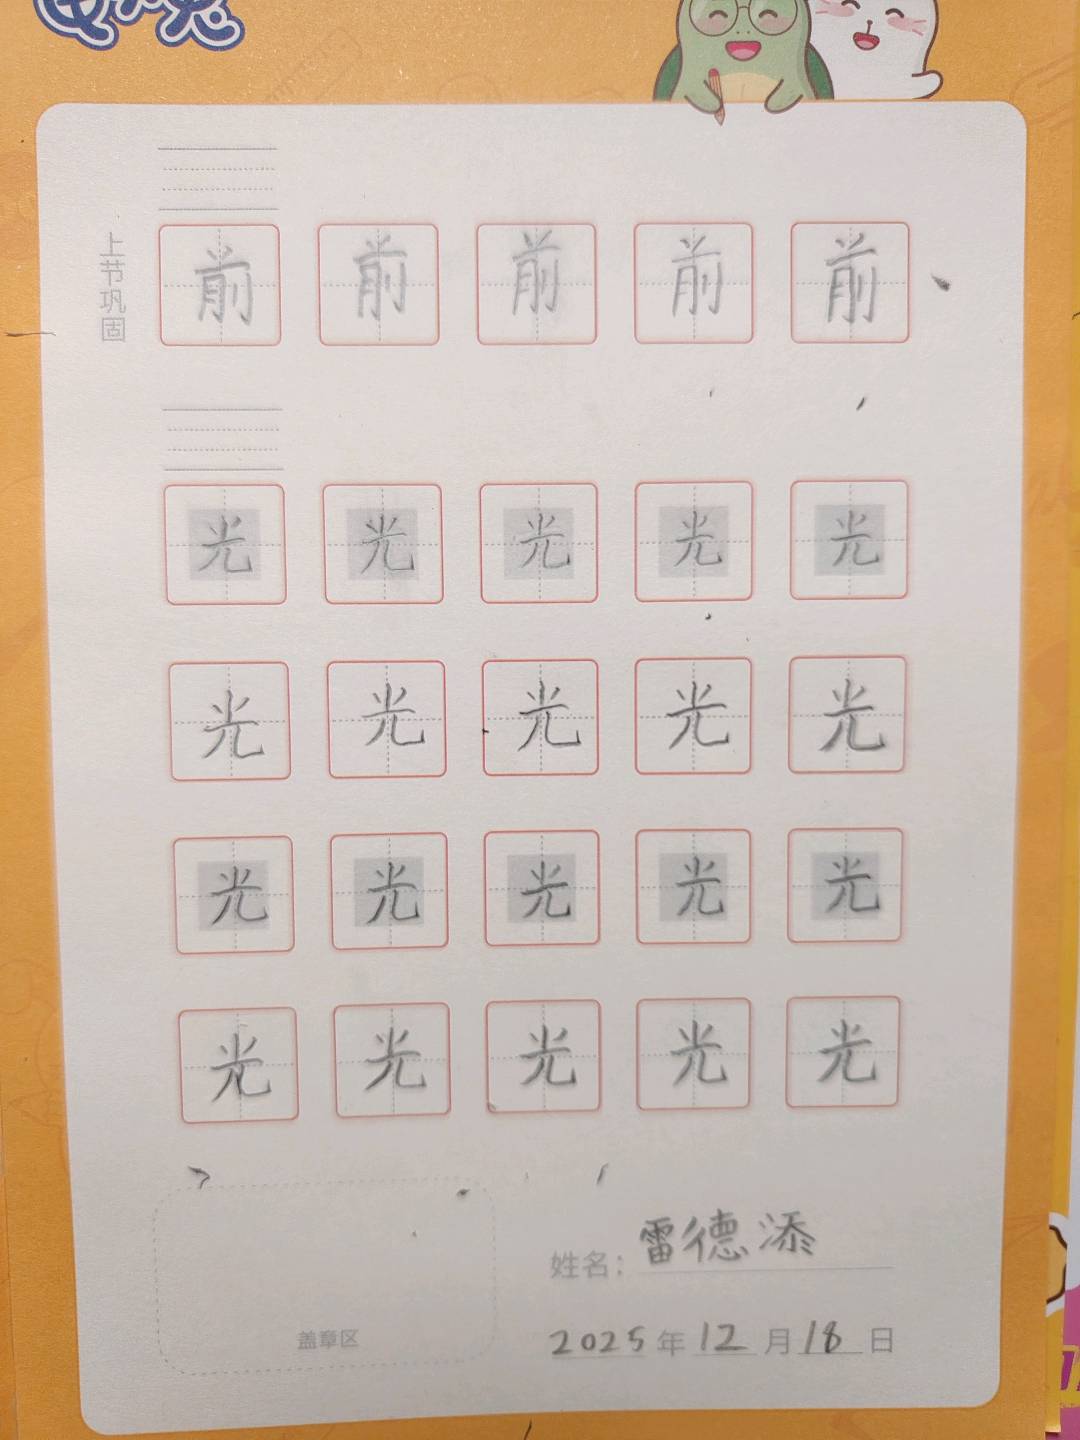 上节巩固
前 前 前 前 前
光 光 光 光 光
光 光 光 光 光
光 光 光 光 光
光 光 光 光 光
姓名：雷德添
盖章区
2025年12月18日